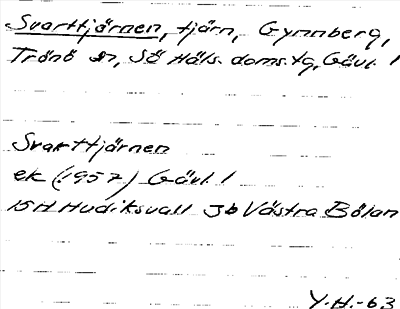 Svarttjärnen, tjärn, Gymnberg,
Trönö sn, Sö Häls. doms.tg, Gävl. l
Svarttjärnen
ek (1957) Gävl. l
15H Hudiksvall Jb Västra Bölan
Y.H.-63